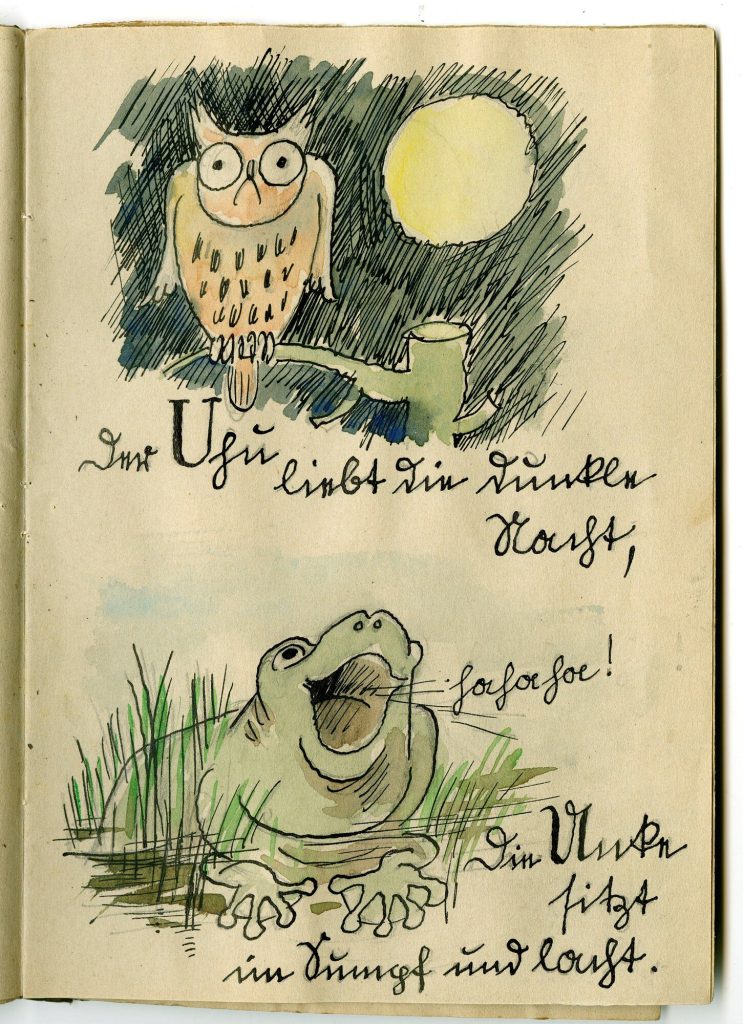 Der Uhu liebt die dunkle
Nacht,
hahaha!
Die Unke
sitzt
im Sumpf und lacht.